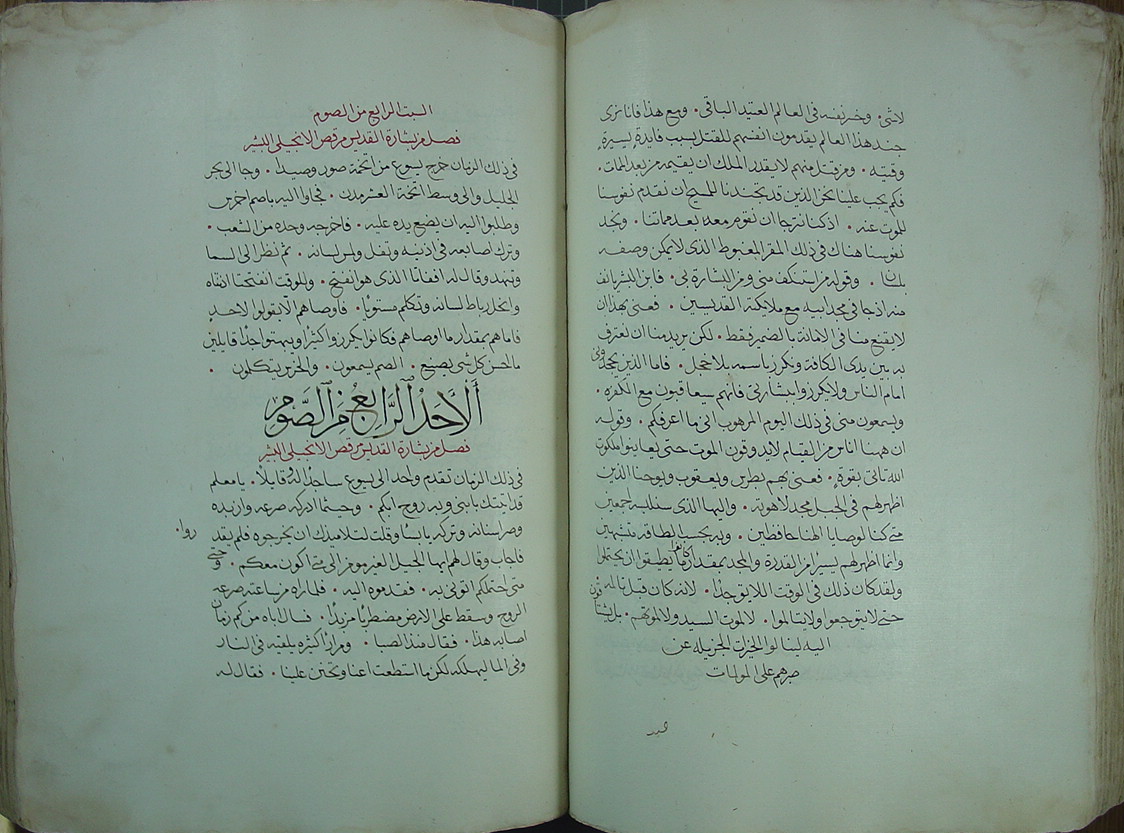 لاشى. وخر نفسه فى العالم العتيد الباقى. ومع هذا فاننا نرى
جند هذا العالم يقدمون انفسهم للقتل لسبب فايدة يسيرة
وقتيه. ومن قتل منهم لا يقدر الملك ان يقيمه من بعد الممات.
فكم يجب علينا نحن الذين قد تجندنا للمسيح ان نقدم نفوسنا
للموت عنه. اذ كنا نترجا ان نقوم معه بعد مماتنا. ونجد
نفوسنا هناك فى ذلك المقر المغبوط الذى لا يمكن وصفه
بلسان. وقوله من استنكف منى ومن البشارة بى. فابن البشر يانف
منه اذ جا فى مجد ابيه مع ملايكته القديسين. فعنى بهذا ان
لا يقنع منا فى الامانة بالضمير فقط. لكن يريد منا ان نعترف
به بين يدى الكافة ونكرز باسمه بلا خجل. فاما الذين يجحدونى
امام الناس ولا يكرزوا ببشارتى فانهم سيعاقبون مع الكفره.
ويسمعون منى فى ذلك اليوم المرهوب انى ما اعرفكم. وقوله
ان ههنا اناس من القيام لا يذوقون الموت حتى يعاينوا ملكوت
الله تاتى بقوة. فعنى بهم بطرس ويعقوب ويوحنا الذين
اظهر لهم فى الجبل مجد لاهوته. واليها الذى سنلبسه اجمعين
متى كنا لوصايا الهنا حافظين. وبه بحسب الطاقه متشبهين
وانما اظهر لهم يسيرا من القدرة والمجد بمقدار ما كانوا يطيقوا ان يحتملوا
ولقد كان ذلك فى الوقت اللايق جدا. لانه كان قبل تالمه
حتى لا يتوجعوا ولا يتالموا. لا لموت السيد ولا لموتهم. بل يشتاقون
اليه لينالوا الخيرات الجزيله عن
صبرهم على المولمات
السبت الرابع من الصوم
فصل من بشارة القديس مرقص الانجيلى البشير
فى ذلك الزمان خرج يسوع من اتخمة صور وصيدا. وجا الى بحر
الجليل والى وسط اتخمة العشر مدن. فجاوا اليه باصم اخرس
وطلبوا اليه ان يضع يده عليه. فاخرجه وحده من الشعب.
وترك اصابعه فى اذنيه وتفل ولمس لسانه. ثم نظر الى السما
وتنهد وقال له افثاثا الذى هو انفتح. وللوقت انفتحتا اذناه
وانحل رباط لسانه وتكلم مستويا. فاوصاهم الا يقولوا لاحد
فاما هم بمقدار ما اوصاهم فكانوا يكرزوا كثيرا ويبهتوا جدا قايلين
ما احسن كل شى يصنع. الصم يسمعون. والخرس يتكلمون.
الاحد الرابع من الصوم
فصل من بشارة القديس مرقص الانجيلى البشير
فى ذلك الزمان تقدم واحد الى يسوع ساجدا له وقايلا. يا معلم
قد اتيتك بابنى وبه روح ابكم. وحيثما ادركه صرعه وازبده
وصر اسنانه وتركه يابسا وقلت لتلاميذك ان يخرجوه فلم يقدروا.
فاجاب وقال لهم ايها الجيل الغير مومن الى متى اكون معكم. وحتى
متى احتملكم اتونى به. فقدموه اليه. فلما راه من ساعته صرعه
الروح وسقط على الارض مضطربا مزبدا. فسال اباه من كم زمان
اصابه هذا. فقال منذ الصبا. ومرارا كثيره يلقيه فى النار
وفى الما ليهلكه لكن ما استطعت اعنا وتحنن علينا. فقال له